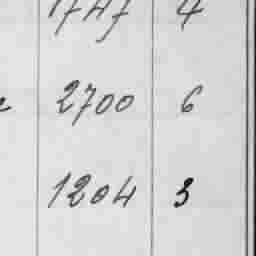 1747 4
2700 6
1204 3